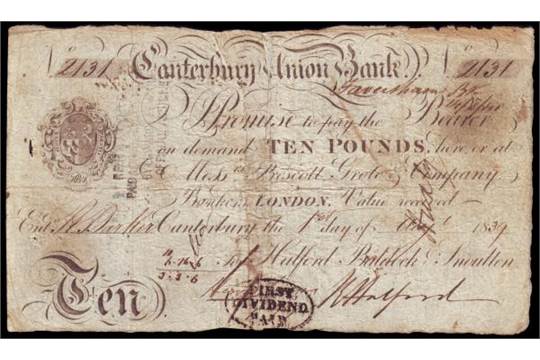 No 2131 Canterbury Union Bank. No 2131
Faversham
I Promise to pay the Bearer
on demand TEN POUNDS, here or at
Mess.rs Prescott, Grote & Company
Bankers, LONDON. Value received
Ent.d Canterbury the 1st day of 1839
For Halford Baldock & Snoulten
Ten
R Halford
FIRST
DIVIDEND
PAID